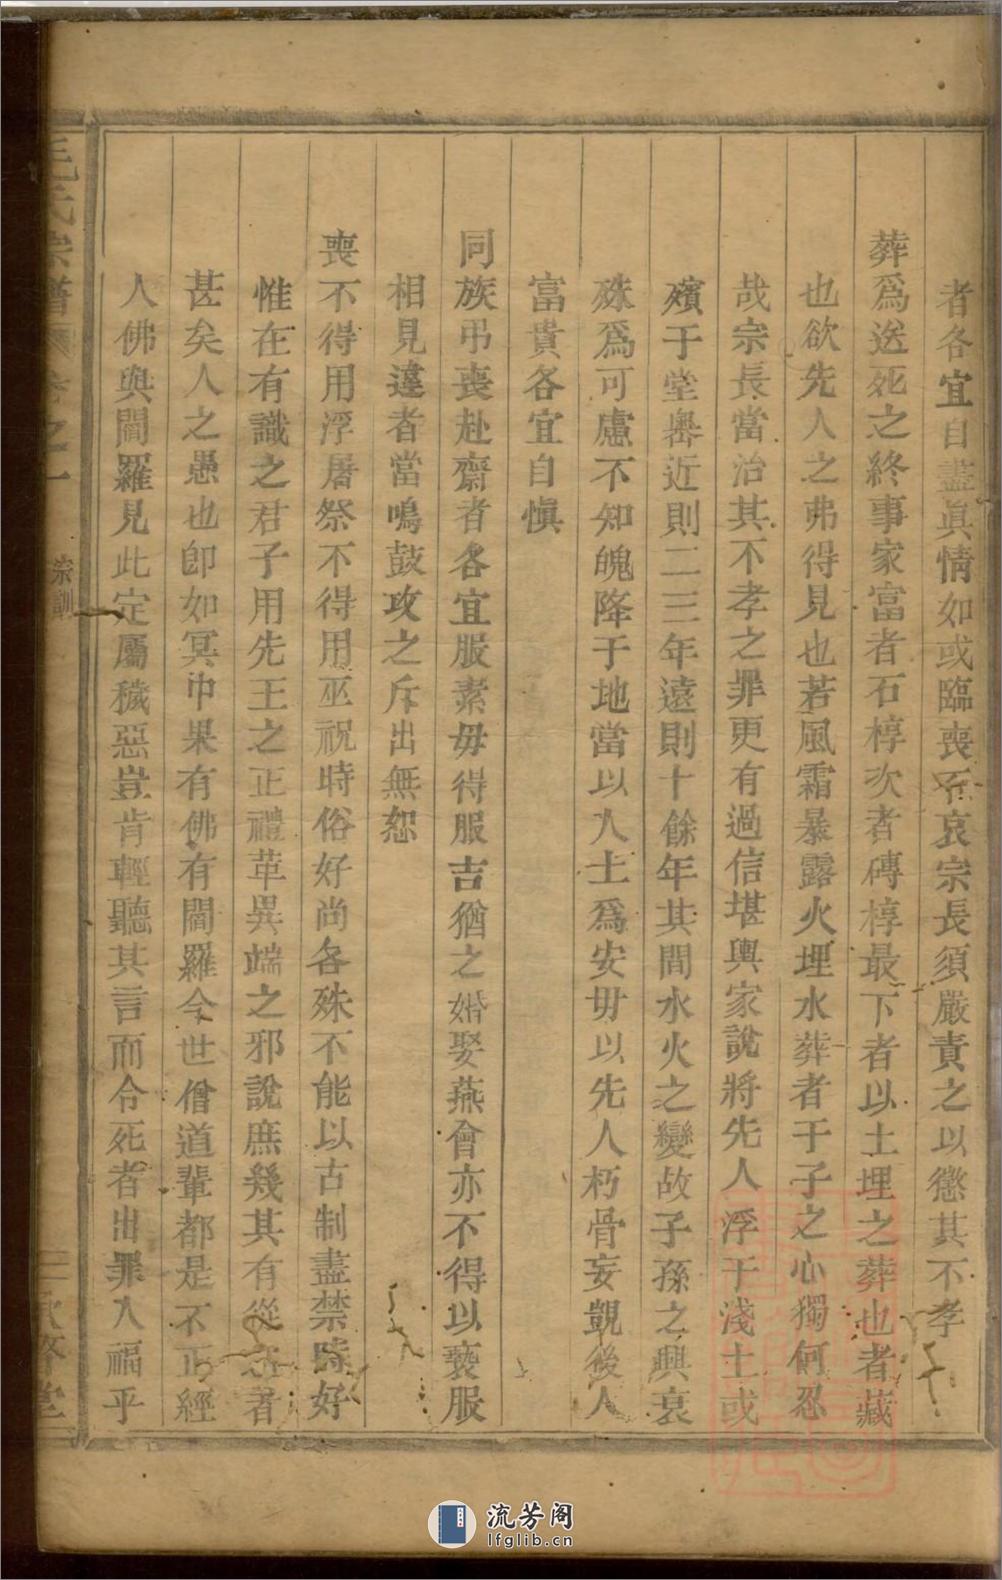 者各宜自盡眞情如或臨喪不哀宗長須嚴責之以懲其不孝
葬爲送死之終事家富者石椁次者磚椁最下者以土埋之葬也者藏
也欲先人之弗得見也若風霜暴露火埋水葬者于子之心獨何忍
哉宗長當治其不孝之罪更有過信堪輿家說將先人浮于淺土或
殯于堂輿近則二三年遠則十餘年其間水火之變故子孫之興衰
殊爲可慮不知魄降于地當以入土爲安毋以先人朽骨妄覬後人
富貴各宜自愼
同族弔喪赴齋者各宜服素毋得服吉猶之婚娶燕會亦不得以褻服
相見違者當鳴鼓攻之斥出無恕
喪不得用浮屠祭不得用巫祝時俗好尚各殊不能以古制盡禁時好
惟在有識之君子用先王之正禮革異端之邪說庶幾其有從者
甚矣人之愚也卽如冥巾果有佛有閻羅今世僧道輩都是不正經
人佛與閻羅見此定屬穢惡豈肯輕聽其言而令死者出罪入福乎
毛氏宗譜 卷之一 宗訓 三 堂
流芳阁
lfglib.cn